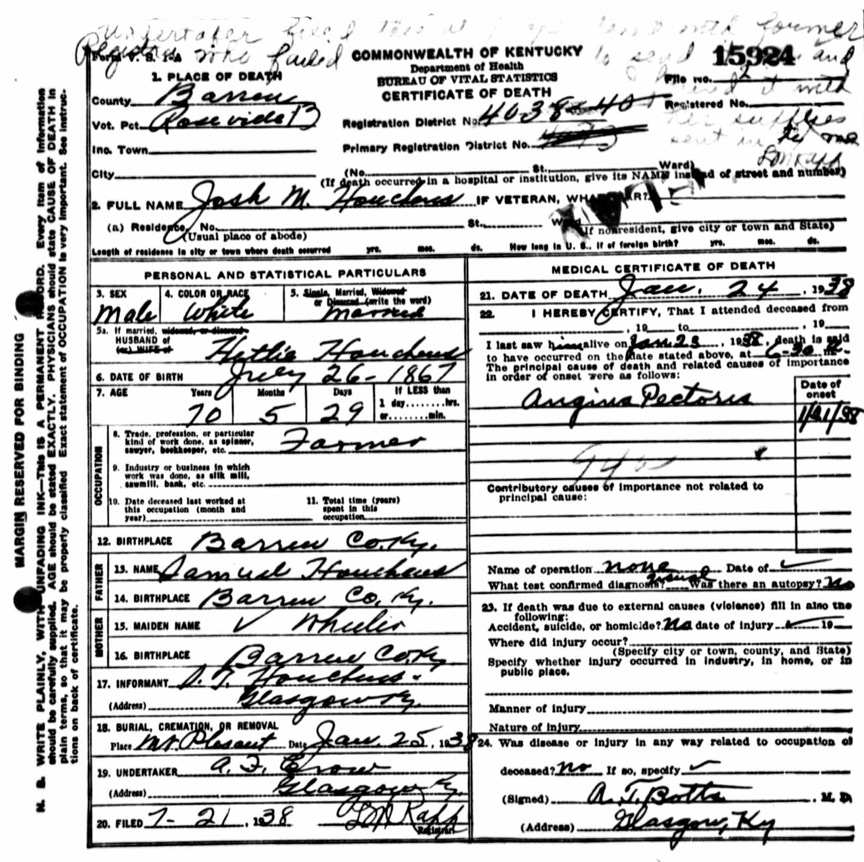 Undertaker filed this at with former
Registrar who failed to send it in and
it with
her supplies
sent in by me
L M Rapp
Form V. S. 1-A
COMMONWEALTH OF KENTUCKY
Department of Health
BUREAU OF VITAL STATISTICS
CERTIFICATE OF DEATH
15924
File No. 2
Registered No.
1. PLACE OF DEATH
County Barren
Vot. Pct. Roseville 13
Inc. Town
City
Registration District No. 4038 40
Primary Registration District No.
(No. St. Ward)
(If death occurred in a hospital or institution, give its NAME instead of street and number)
2. FULL NAME Josh M. Houchens IF VETERAN, WHAT WAR?
(a) Residence. No. St. Ward
(Usual place of abode) (If nonresident, give city or town and State)
Length of residence in city or town where death occurred yrs. mos. ds. How long in U. S., if of foreign birth? yrs. mos. ds.
PERSONAL AND STATISTICAL PARTICULARS
3. SEX Male
4. COLOR OR RACE White
5. Single, Married, Widowed or Divorced (write the word) Married
5a. If married, widowed, or divorced
HUSBAND of
(or) WIFE of Hettie Houchens
6. DATE OF BIRTH July 26-1867
7. AGE Years 70 Months 5 Days 29 If LESS than 1 day, hrs. or min.
OCCUPATION
8. Trade, profession, or particular kind of work done, as spinner, sawyer, bookkeeper, etc. Farmer
9. Industry or business in which work was done, as silk mill, sawmill, bank, etc.
10. Date deceased last worked at this occupation (month and year)
11. Total time (years) spent in this occupation
12. BIRTHPLACE Barren Co. Ky.
FATHER
13. NAME Samuel Houchens
14. BIRTHPLACE Barren Co. Ky.
MOTHER
15. MAIDEN NAME ✓ Wheeler
16. BIRTHPLACE Barren Co Ky
17. INFORMANT D. T. Houchens
(Address) Glasgow Ky.
18. BURIAL, CREMATION, OR REMOVAL
Place Mt Plesant Date Jan. 25, 1938
19. UNDERTAKER A. F. Crow
(Address) Glasgow Ky.
20. FILED 7-21, 1938 L M Rapp
Registrar
MEDICAL CERTIFICATE OF DEATH
21. DATE OF DEATH Jan. 24, 1938
22. I HEREBY CERTIFY, That I attended deceased from
, 19 to , 19
I last saw him alive on Jan 23, 1938, death is said
to have occurred on the date stated above, at 6-30 m.
The principal cause of death and related causes of importance
in order of onset were as follows:
Date of onset
Angina Pectoris 1/21/38
Contributory causes of importance not related to
principal cause:
Name of operation none Date of ✓
What test confirmed diagnosis? usual Was there an autopsy? No
23. If death was due to external causes (violence) fill in also the
following:
Accident, suicide, or homicide? No date of injury ✓ 19
Where did injury occur?
(Specify city or town, county, and State)
Specify whether injury occurred in industry, in home, or in
public place.
Manner of injury
Nature of injury
24. Was disease or injury in any way related to occupation of
deceased? No If so, specify ✓
(Signed) A. T. Botts M. D.
(Address) Glasgow, Ky
MARGIN RESERVED FOR BINDING
N. B. WRITE PLAINLY, WITH UNFADING INK—This is A PERMANENT RECORD. Every item of information
should be carefully supplied. AGE should be stated EXACTLY. PHYSICIANS should state CAUSE OF DEATH in
plain terms, so that it may be properly classified. Exact statement of OCCUPATION is very important. See instruc-
tions on back of certificate.